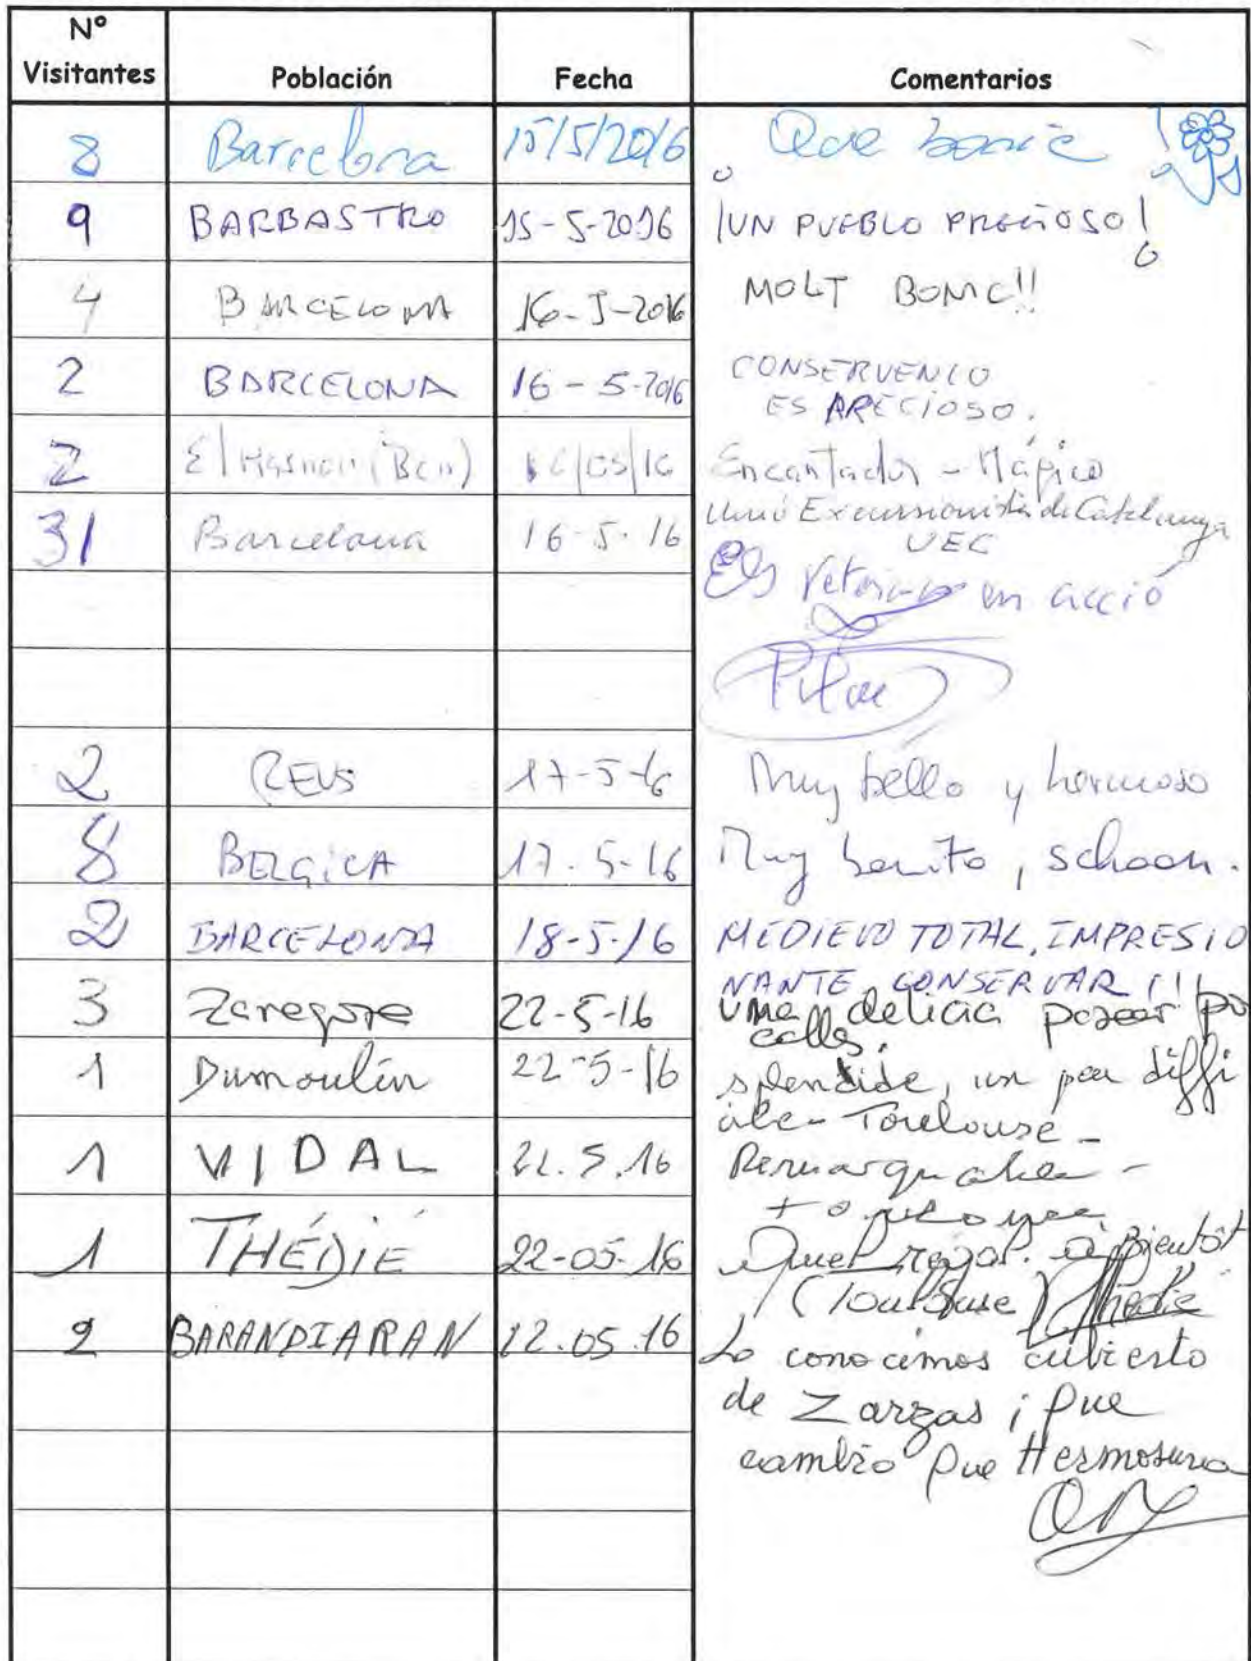 Nº
Visitantes Población Fecha Comentarios
8 Barcelona 15/5/2016 Que bonic!
9 BARBASTRO 15-5-2016 ¡UN PUEBLO PRECIOSO!
4 BARCELONA 16-5-2016 MOLT BONIC!!
2 BARCELONA 16-5-2016 CONSERVENLO
ES PRECIOSO.
2 El Masnou (Bcn) 16/05/16 Encantador - Mágico
31 Barcelona 16-5-16 Unió Excursionista de Catalunya
UEC
Els veterans en acció
Pilar
2 REUS 17-5-16 Muy bello y hermoso
8 BELGICA 17-5-16 Muy bonito, schoon.
2 BARCELONA 18-5-16 MEDIEVO TOTAL, IMPRESIO
NANTE, CONSERVAR!!!
3 Zaragoza 22-5-16 Una delicia pasear por
calls.
1 Dumoulin 22-5-16 splendide, un peu diffi
cile - Toulouse -
1 VIDAL 22.5.16 Remarquable -
1 THÉDIÉ 22-05-16 Quel régal. à bientôt
(Toulouse) Thédié
2 BARANDIARAN 22.05.16 Lo conocimos cubierto
de Zarzas ¡ Que
cambio Que Hermosura